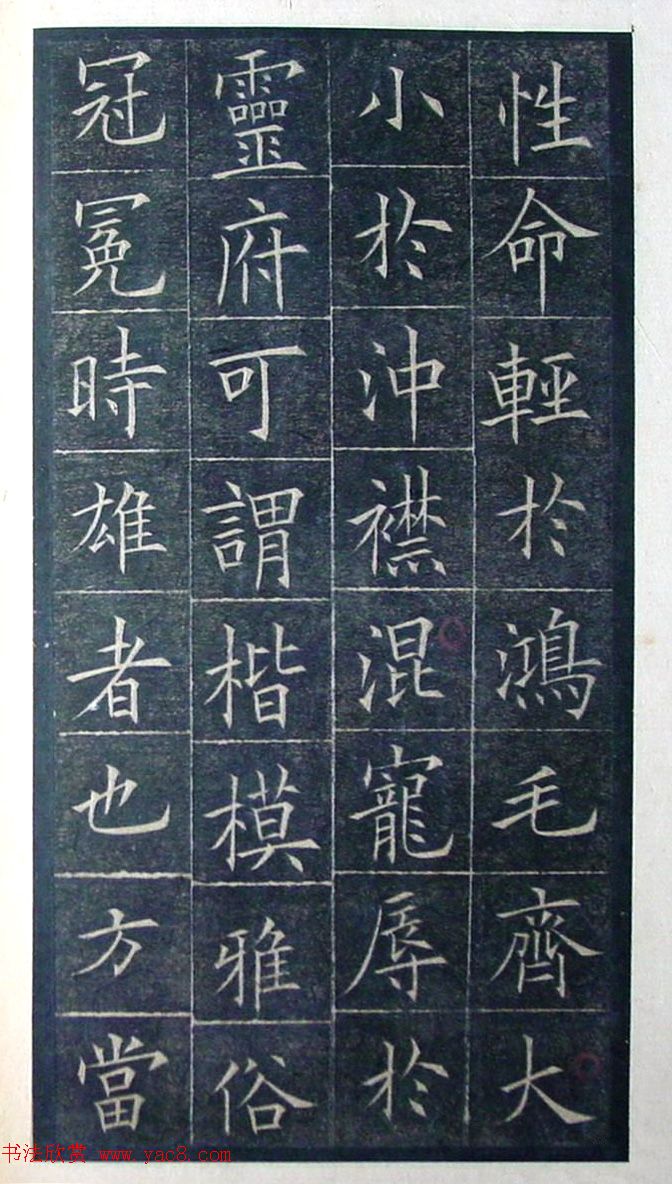 性命輕於鴻毛齊大
小於沖襟混寵辱於
靈府可謂楷模雅俗
冠冕時雄者也方當
书法欣赏 www.yac8.com